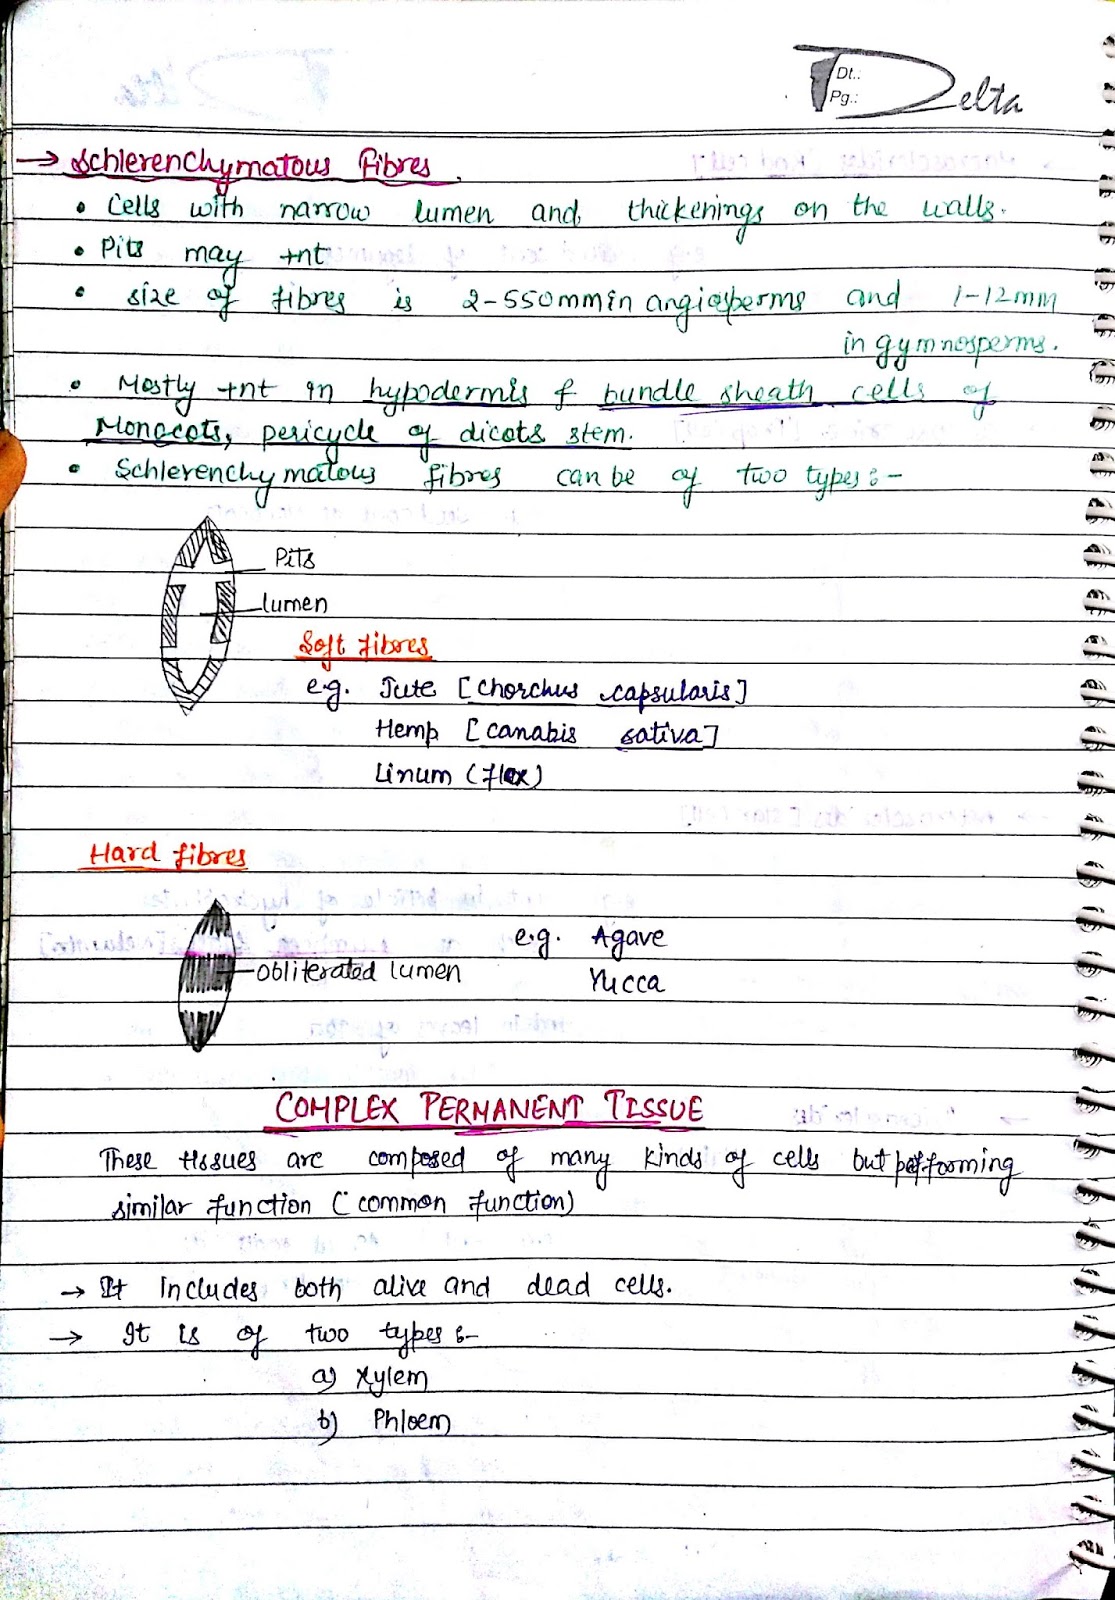 Dt.:
Pg.:
Delta
→ Schlerenchymatous Fibres
• Cells with narrow lumen and thickenings on the walls.
• Pits may +nt
• size of fibres is 2-550mm in angiosperms and 1-12mm
in gymnosperms.
• Mostly +nt in hypodermis & bundle sheath cells of
Monocots, pericycle of dicots stem.
• Schlerenchymatous fibres can be of two types :-
Pits
lumen
Soft fibres
e.g. Jute [Chorchus capsularis]
Hemp [Canabis sativa]
Linum (flex)
Hard fibres
e.g. Agave
obliterated lumen
Yucca
COMPLEX PERMANENT TISSUE
These tissues are composed of many kinds of cells but performing
similar function (common function)
→ It includes both alive and dead cells.
→ It is of two types :-
a) Xylem
b) Phloem